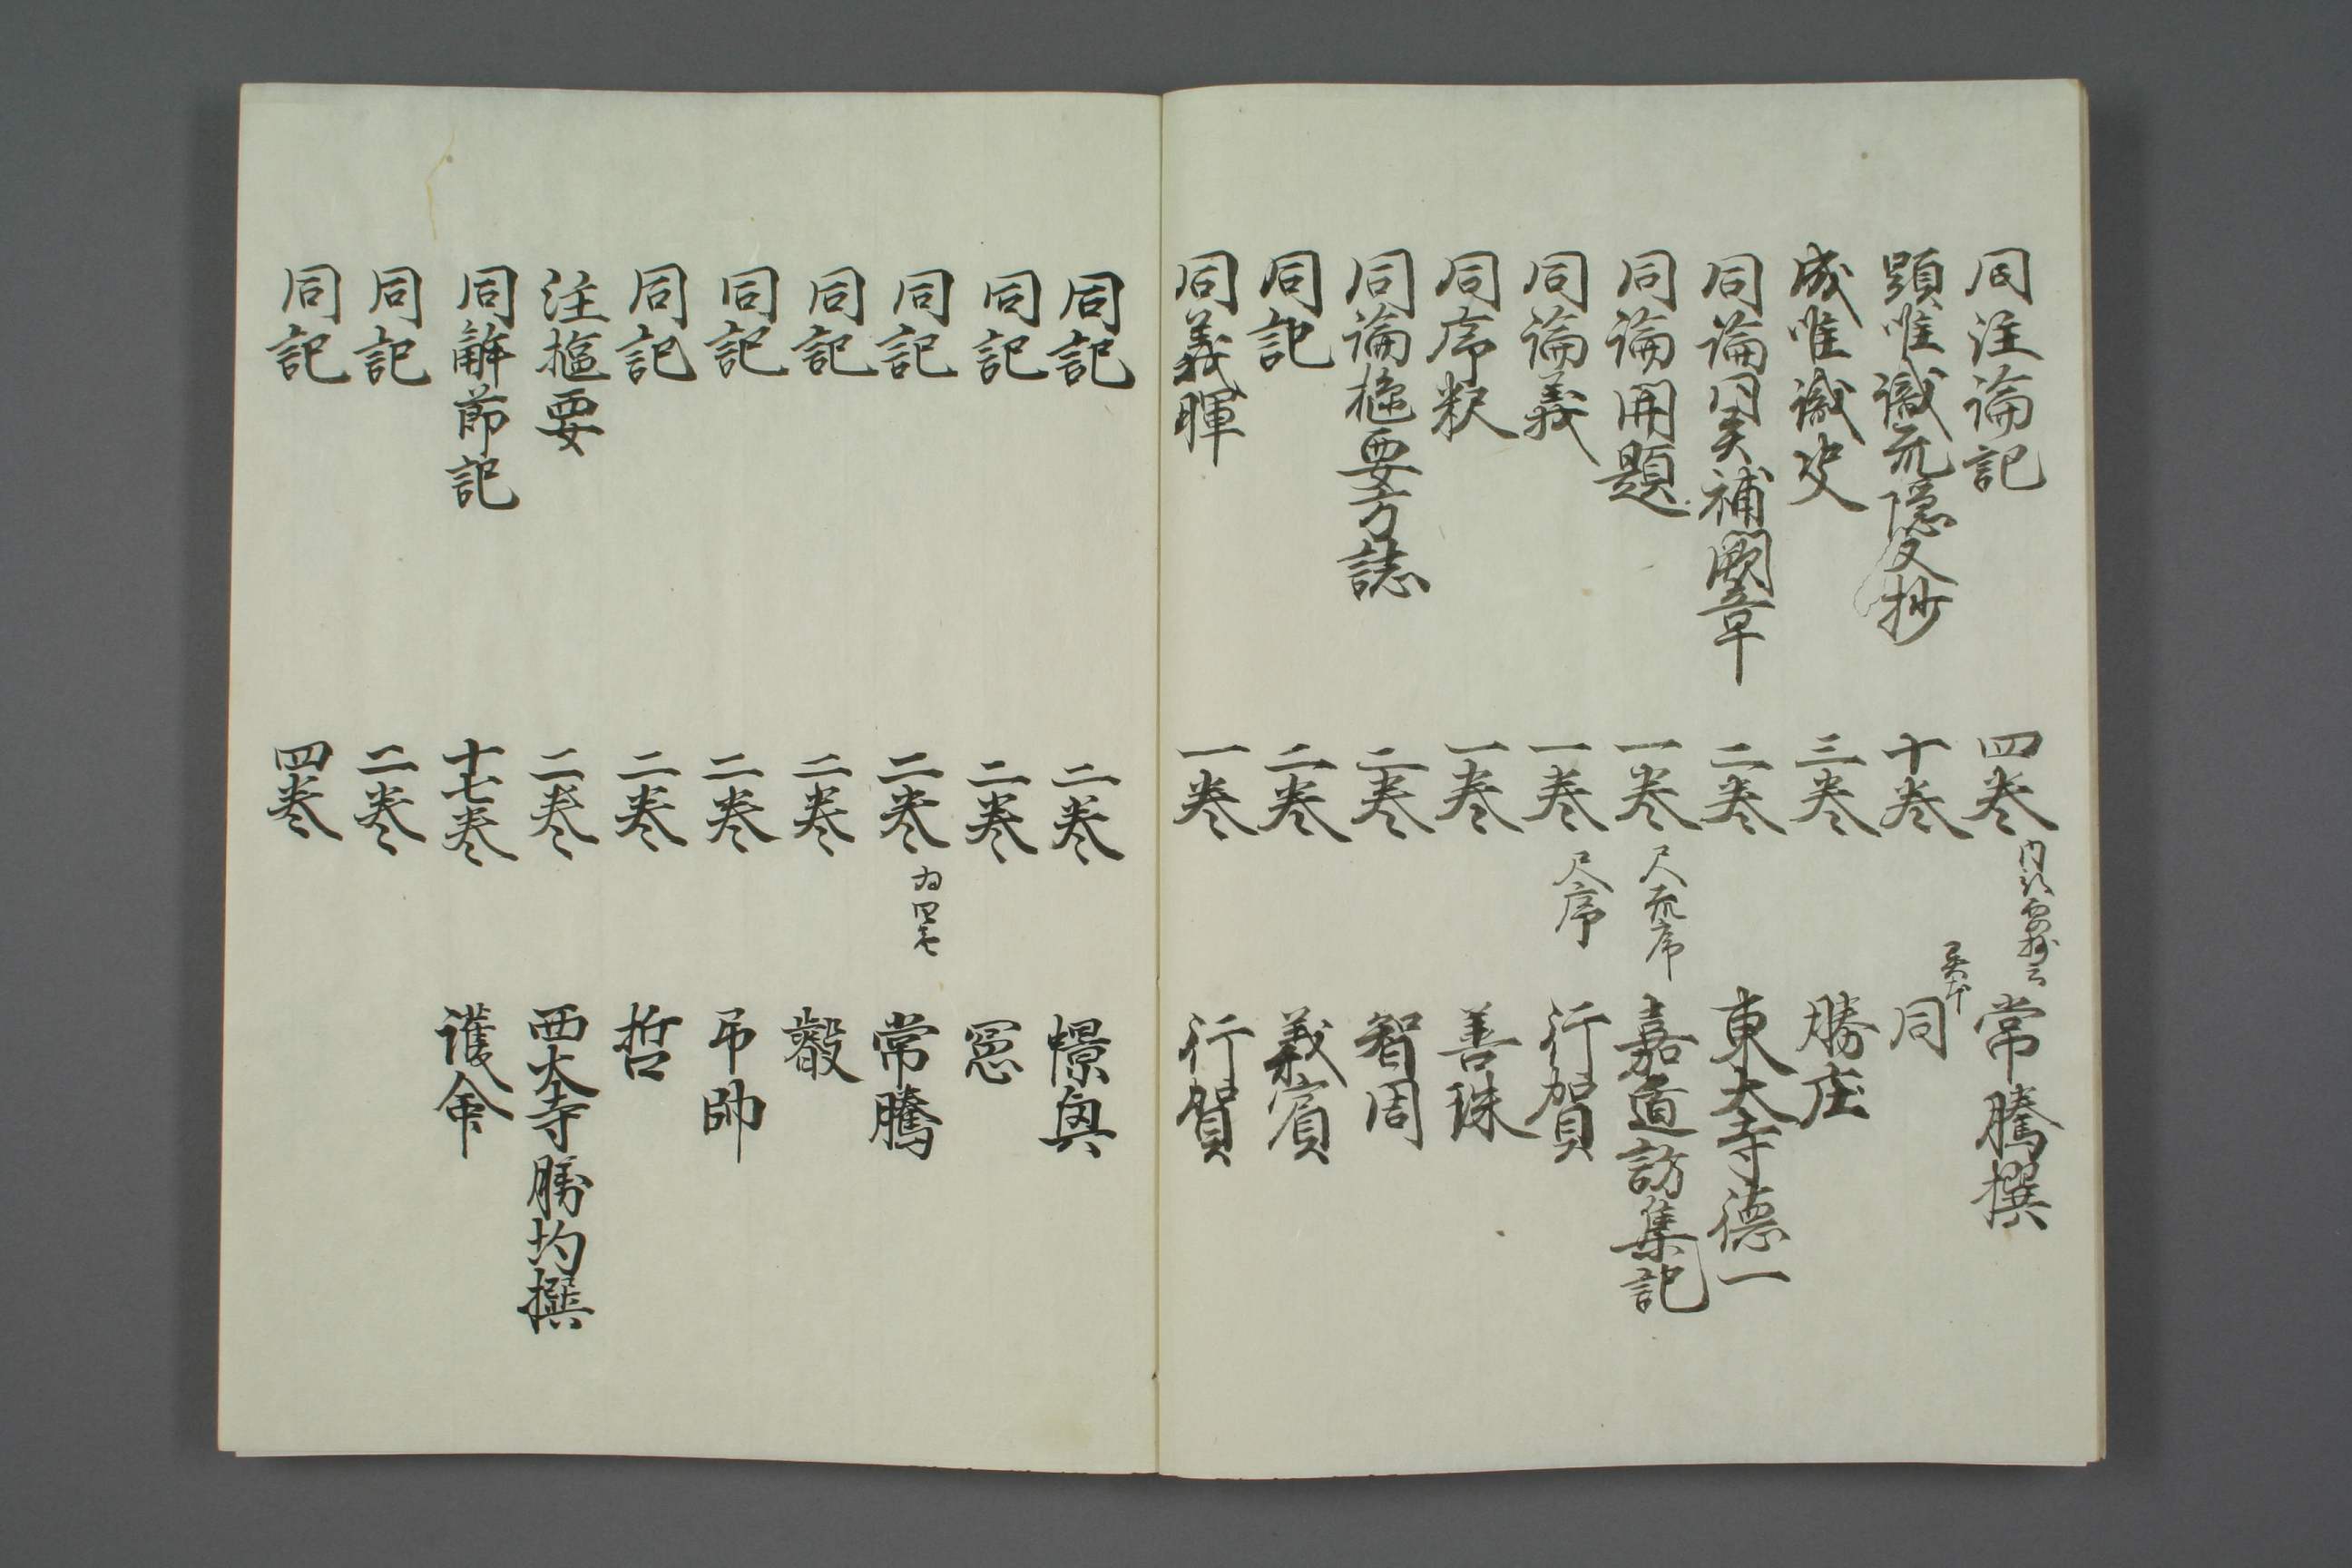 同注論記 四巻 常騰撰
顕唯識疏隠文抄 十巻 同
成唯識决 三巻 勝庄
同論同異補闕章 二巻 東大寺徳一
同論開題 一巻 尺疏序 嘉道訪集記
同論義 一巻 尺序 行賀
同序釈 一巻 善珠
同論樞要方誌 二巻 智周
同記 二巻 義賓
同義暉 一巻 行賀
同記 二巻 憬興
同記 二巻 冥
同記 二巻 为四巻 常騰
同記 二巻
同記 二巻 吊帥
同記 二巻 哲
注樞要 二巻 西大寺勝均撰
同解節記 十七巻 護命
同記 二巻
同記 四巻